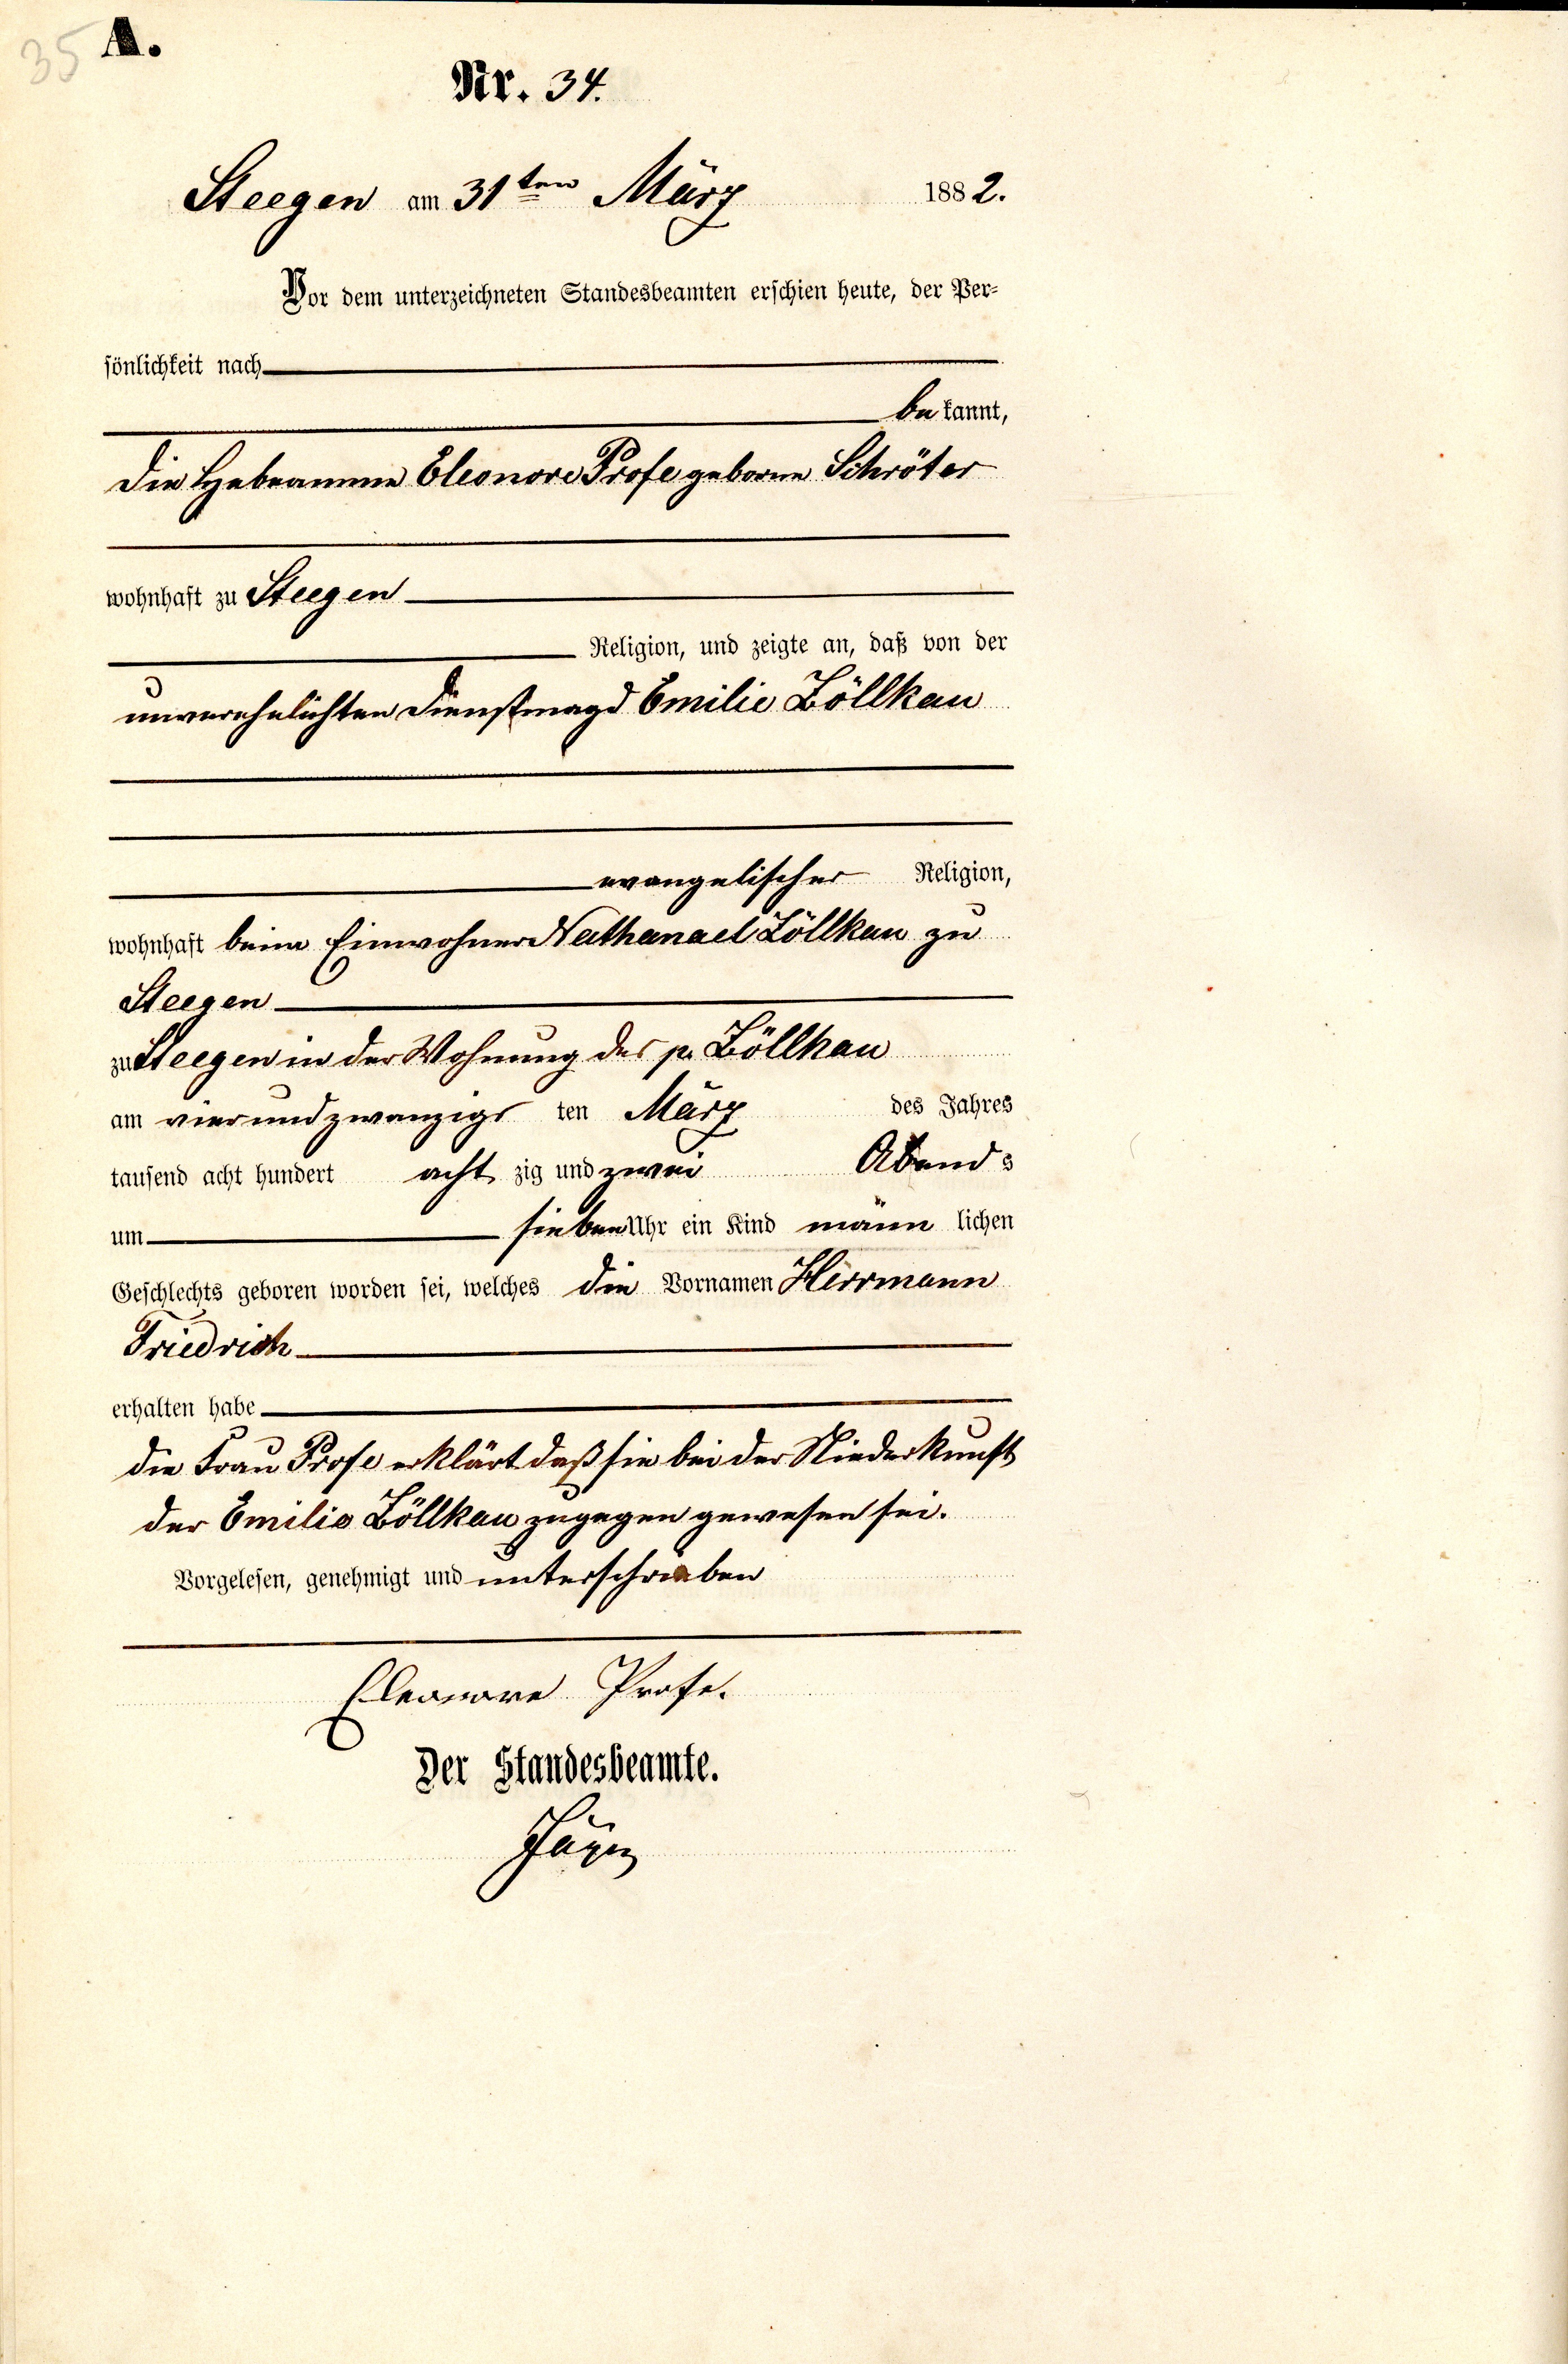 35 A.
Nr. 34.
Steegen am 31ten März 1882.
Vor dem unterzeichneten Standesbeamten erschien heute, der Per-
sönlichkeit nach
bekannt,
die Hebeamme Eleonore Profe geborne Schröter
wohnhaft zu Steegen
Religion, und zeigte an, daß von der
unverehelichten Dienstmagd Emilie Zöllkau
evangelischer Religion,
wohnhaft beim Einwohner Nathanael Zöllkau zu
Steegen
zu Steegen in der Wohnung des p. Zöllkau
am vierundzwanzigs ten März des Jahres
tausend acht hundert acht zig und zwei Abends
um sieben Uhr ein Kind männ lichen
Geschlechts geboren worden sei, welches die Vornamen Herrmann
Friedrich
erhalten habe
die Frau Profe erklärt daß sie bei der Niederkunft
der Emilie Zöllkau zugegen gewesen sei.
Vorgelesen, genehmigt und unterschrieben
Eleonore Profe.
Der Standesbeamte.